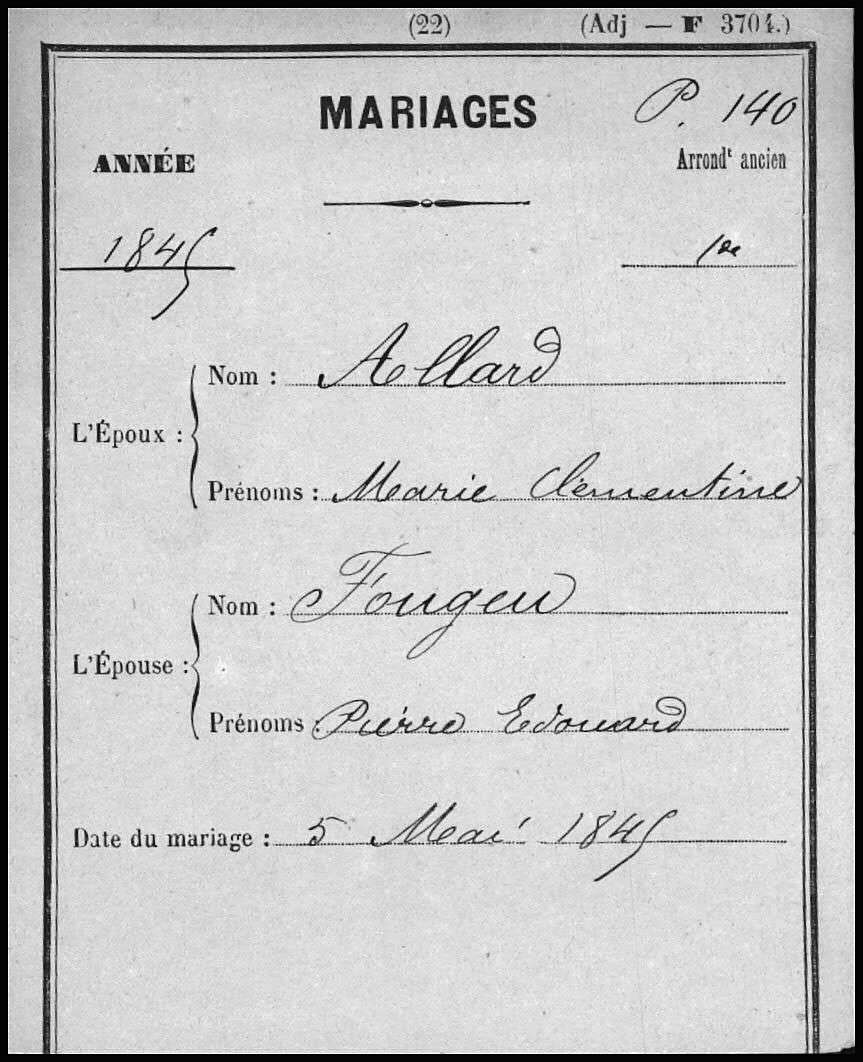 (22) (Adj — F 3704.)
MARIAGES P. 140
ANNÉE Arrondt ancien
1845 1er
Nom : Allard
L'Époux :
Prénoms : Marie Clémentine
Nom : Fougeu
L'Épouse :
Prénoms : Pierre Edouard
Date du mariage : 5 Mai 1845